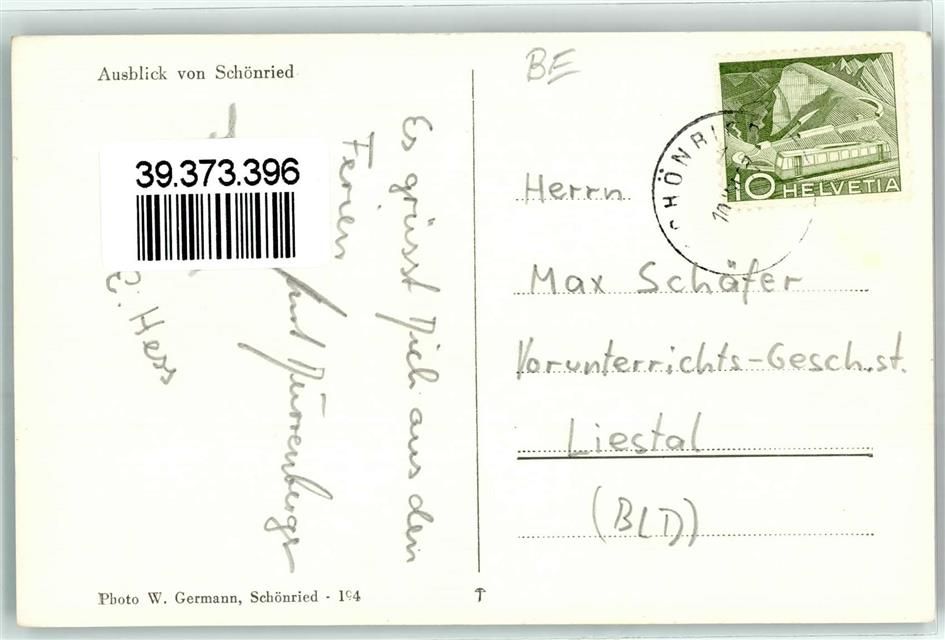 Ausblick von Schönried
BE
10 HELVETIA
39.373.396
Es grüsst Dich aus den
Ferien
Dürrenberger
E. Hess
Herrn
Max Schäfer
Vorunterrichts-Gesch.st.
Liestal
(BLD)
Photo W. Germann, Schönried - 194